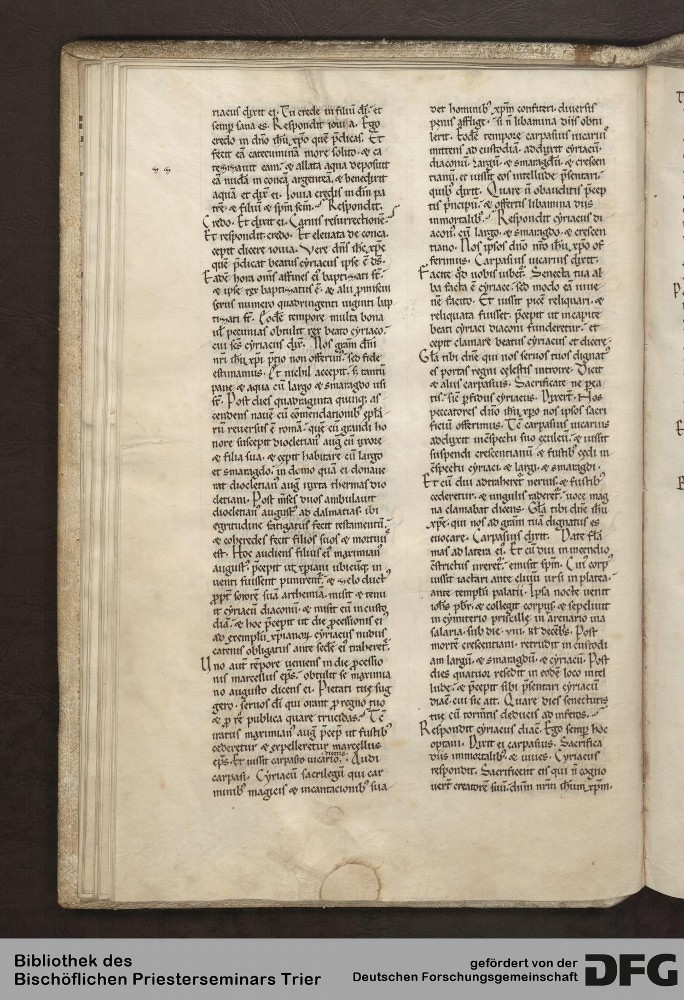 riacus dixit ei. Tu crede in filiū dī. et
semp sana es. Respondit iouia. Ego
credo in dn̄o ihū xp̄o quē p̄dicas. Et
fecit eā catecuminā more solito. & ca
tezizauit eam. & allata aqua deposuit
eā nudā in concā argenteā. & benedixit
aquā et dix̄ ei. Iouia credis in dm̄ pa
trē. & filiū & sp̄m sc̄m. Respondit.
Credo. Et dixit ei. Carnis resurrectionē.
Et respondit credo. Et eleuata de conca.
cepit dicere iouia. Vere dn̄s ihc xp̄c
quē p̄dicat beatus cyriacus ipse ē ds̄.
Eadē hora om̄s affines ei baptizati st̄.
& ipse rex baptizatus ē. & alii promiscui
sexus numero quadringenti uiginti bap
tizati st̄. Eodē tempore multa bona
ul̄ pecunias obtulit rex beato cyriaco.
cui sc̄s cyriacus dix̄. Nos gram̄ dn̄i
nr̄i ihū xp̄i p̄tio non offerim. sed fide
estimamus. Et nichil accepit. s; tantū
pane & aqua cū largo & smaragdo usi
st̄. Post dies quadraginta quinq; as
cendens nauē cū cōmendationib; epl̄a
rū reuersus ē romā. quē cū grandi ho
nore suscepit diocletian aug cū uxore
& filia sua. & cepit habitare cū largo
et smaragdo. in domo quā ei donaue
rat diocletian aug iuxta thermas dio
cletiani. Post mēses duos ambulauit
diocletian august ad dalmatias. ibi
egritudine fatigatus fecit testamentū.
& coheredes fecit filios suos & mortuus
est. Hoc audiens filius ei maximian
august. p̄cepit ut xp̄iani ubicumq; in
uenti fuissent punirent. & zelo duct
propt sororē suā arthemiā. misit & tenu
it cyriacū diaconū. & misit eū in custo
diā. & hoc p̄cepit ut die processionis ei
ad exemplū xp̄ianor cyriacus nudus
catenis obligatus ante sedē ei traheret.
Uno aut tēpore ueniens in die processio
nis marcellus ep̄s. obtulit se maximia
no augusto dicens ei. Pietati tue sug
gero. seruos dī qui orant pro regno tuo
& pro re publica quare trucidas. Tē
iratus maximian aug p̄cep ut fustib;
cederetur & expelleretur marcellus
ep̄s. Et iussit carpasio uicario. Audi
carpasi. Cyriacū sacrilegū qui car
minib; magicis & incantacionib; sua
det hominib; xp̄m confiteri. diuersis
penis afflige. si ñ libamina diis obtu
lerit. Eodē tempore carpasius uicarius
mittens ad custodiā. adduxit cyriacū
diaconū. Largū. & smaragdū. & crescen
tianū. et iussit eos intellude p̄sentari.
quib; dixit. Quare ñ obauditis p̄cep
tis principū. & offertis libamina diis
immortalib;. Respondit cyriacus di
acon cū largo. & smaragdo. & crescen
tiano. Nos ipsos dn̄o nr̄o ihū xp̄o of
ferimus. Carpasius uicarius dixit.
Facite qd uobis iubet. Senecta tua al
ba facta ē cyriace. sed modo eā iuue
nē facito. Et iussit picē reliquari. &
reliquata fuisset. p̄cepit ut in capite
beati cyriaci diaconi funderetur. et
cepit clamare beatus cyriacus et dicere.
Gl̄a tibi dn̄e qui nos seruos tuos dignat
es portas regni celestis introire. Dicit
& alius carpasius. Sacrificate ne pea
tis. sic pfidus cyriacus. Dixert. Nos
peccatores dn̄o ihū xp̄o nos ipsos sacri
ficiū offerimus. Tē carpasius uicarius
adduxit in cspectu suo eculeū. & iussit
suspendi crescentianū & fustib; cedi in
cspectu cyriaci. & largi. & smaragdi.
Et cū diu adtraheret neruis. & fustib;
cederetur. & ungulis raderet. uoce mag
na clamabat dicens. Gl̄a tibi dn̄e ihū
xp̄e. qui nos ad gram̄ tuā dignatus es
euocare. Carpasius dixit. Date flā
mas ad latera ei. Et cū diu in incendio
cstrictus ureret. emisit sp̄m. Cui corp
iussit iactari ante cliuū ursi in platea.
ante templū palatii. Ipsa nocte uenit
iohs pbr. & collegit corpus & sepeliuit
in cymiterio priscille. in arenario uia
salaria. sub die. viii. kl decēb. Post
mortē crescentiani. retrudit in custodi
am largū. & smaragdū. & cyriacū. Post
dies quatuor resedit in eodē loco intel
lude. & p̄cepit sibi p̄sentari cyriacū
diac. cui sic ait. Quare dies senectutis
tue cū tormtis deduces ad inferos.
Respondit cyriacus diac. Ego semp hoc
optaui. Dixit ei carpasius. Sacrifica
diis immortalib;. & uiues. Cyriacus
respondit. Sacrificent eis qui ñ cogno
uert creatorē suū dn̄m nrm̄ ihum xp̄m.
Bibliothek des
Bischöflichen Priesterseminars Trier
gefördert von der
Deutschen Forschungsgemeinschaft
DFG